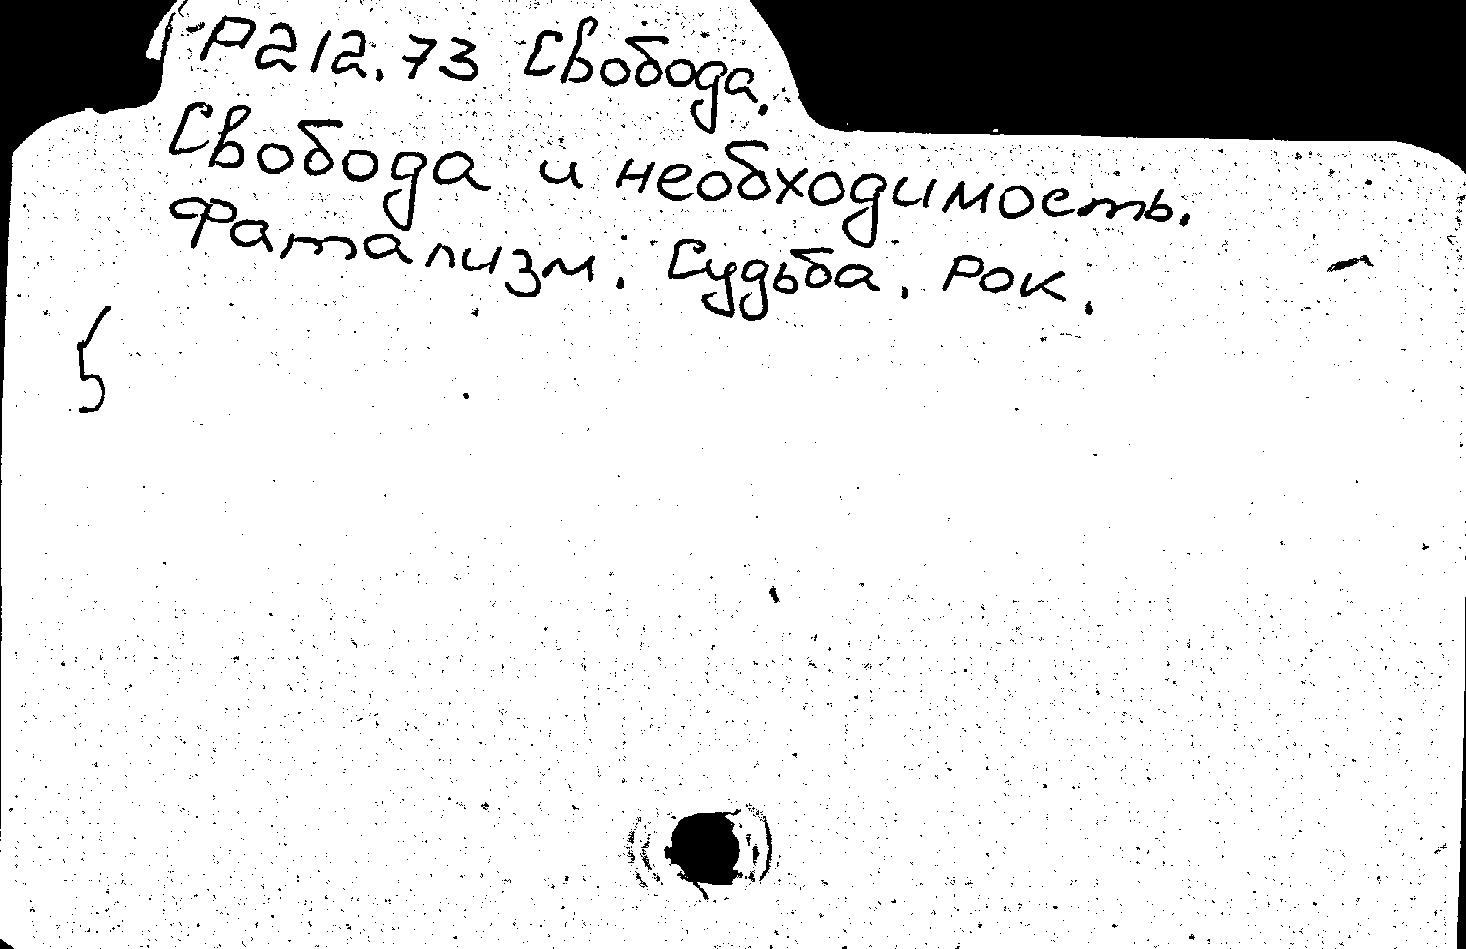 Р212.73 Свобода.
Свобода и необходимость.
Фатализм. Судьба. Рок.